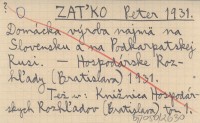 ? O ZAŤKO Peter 1931.
Domácka výroba najmä na
Slovensku a na Podkarpatskej
Rusi. — Hospodárske Roz-
hľady (Bratislava) 1931.
Tež v: Knižnica Hospodár-
skych Rozhľadov (Bratislava) tom 1.